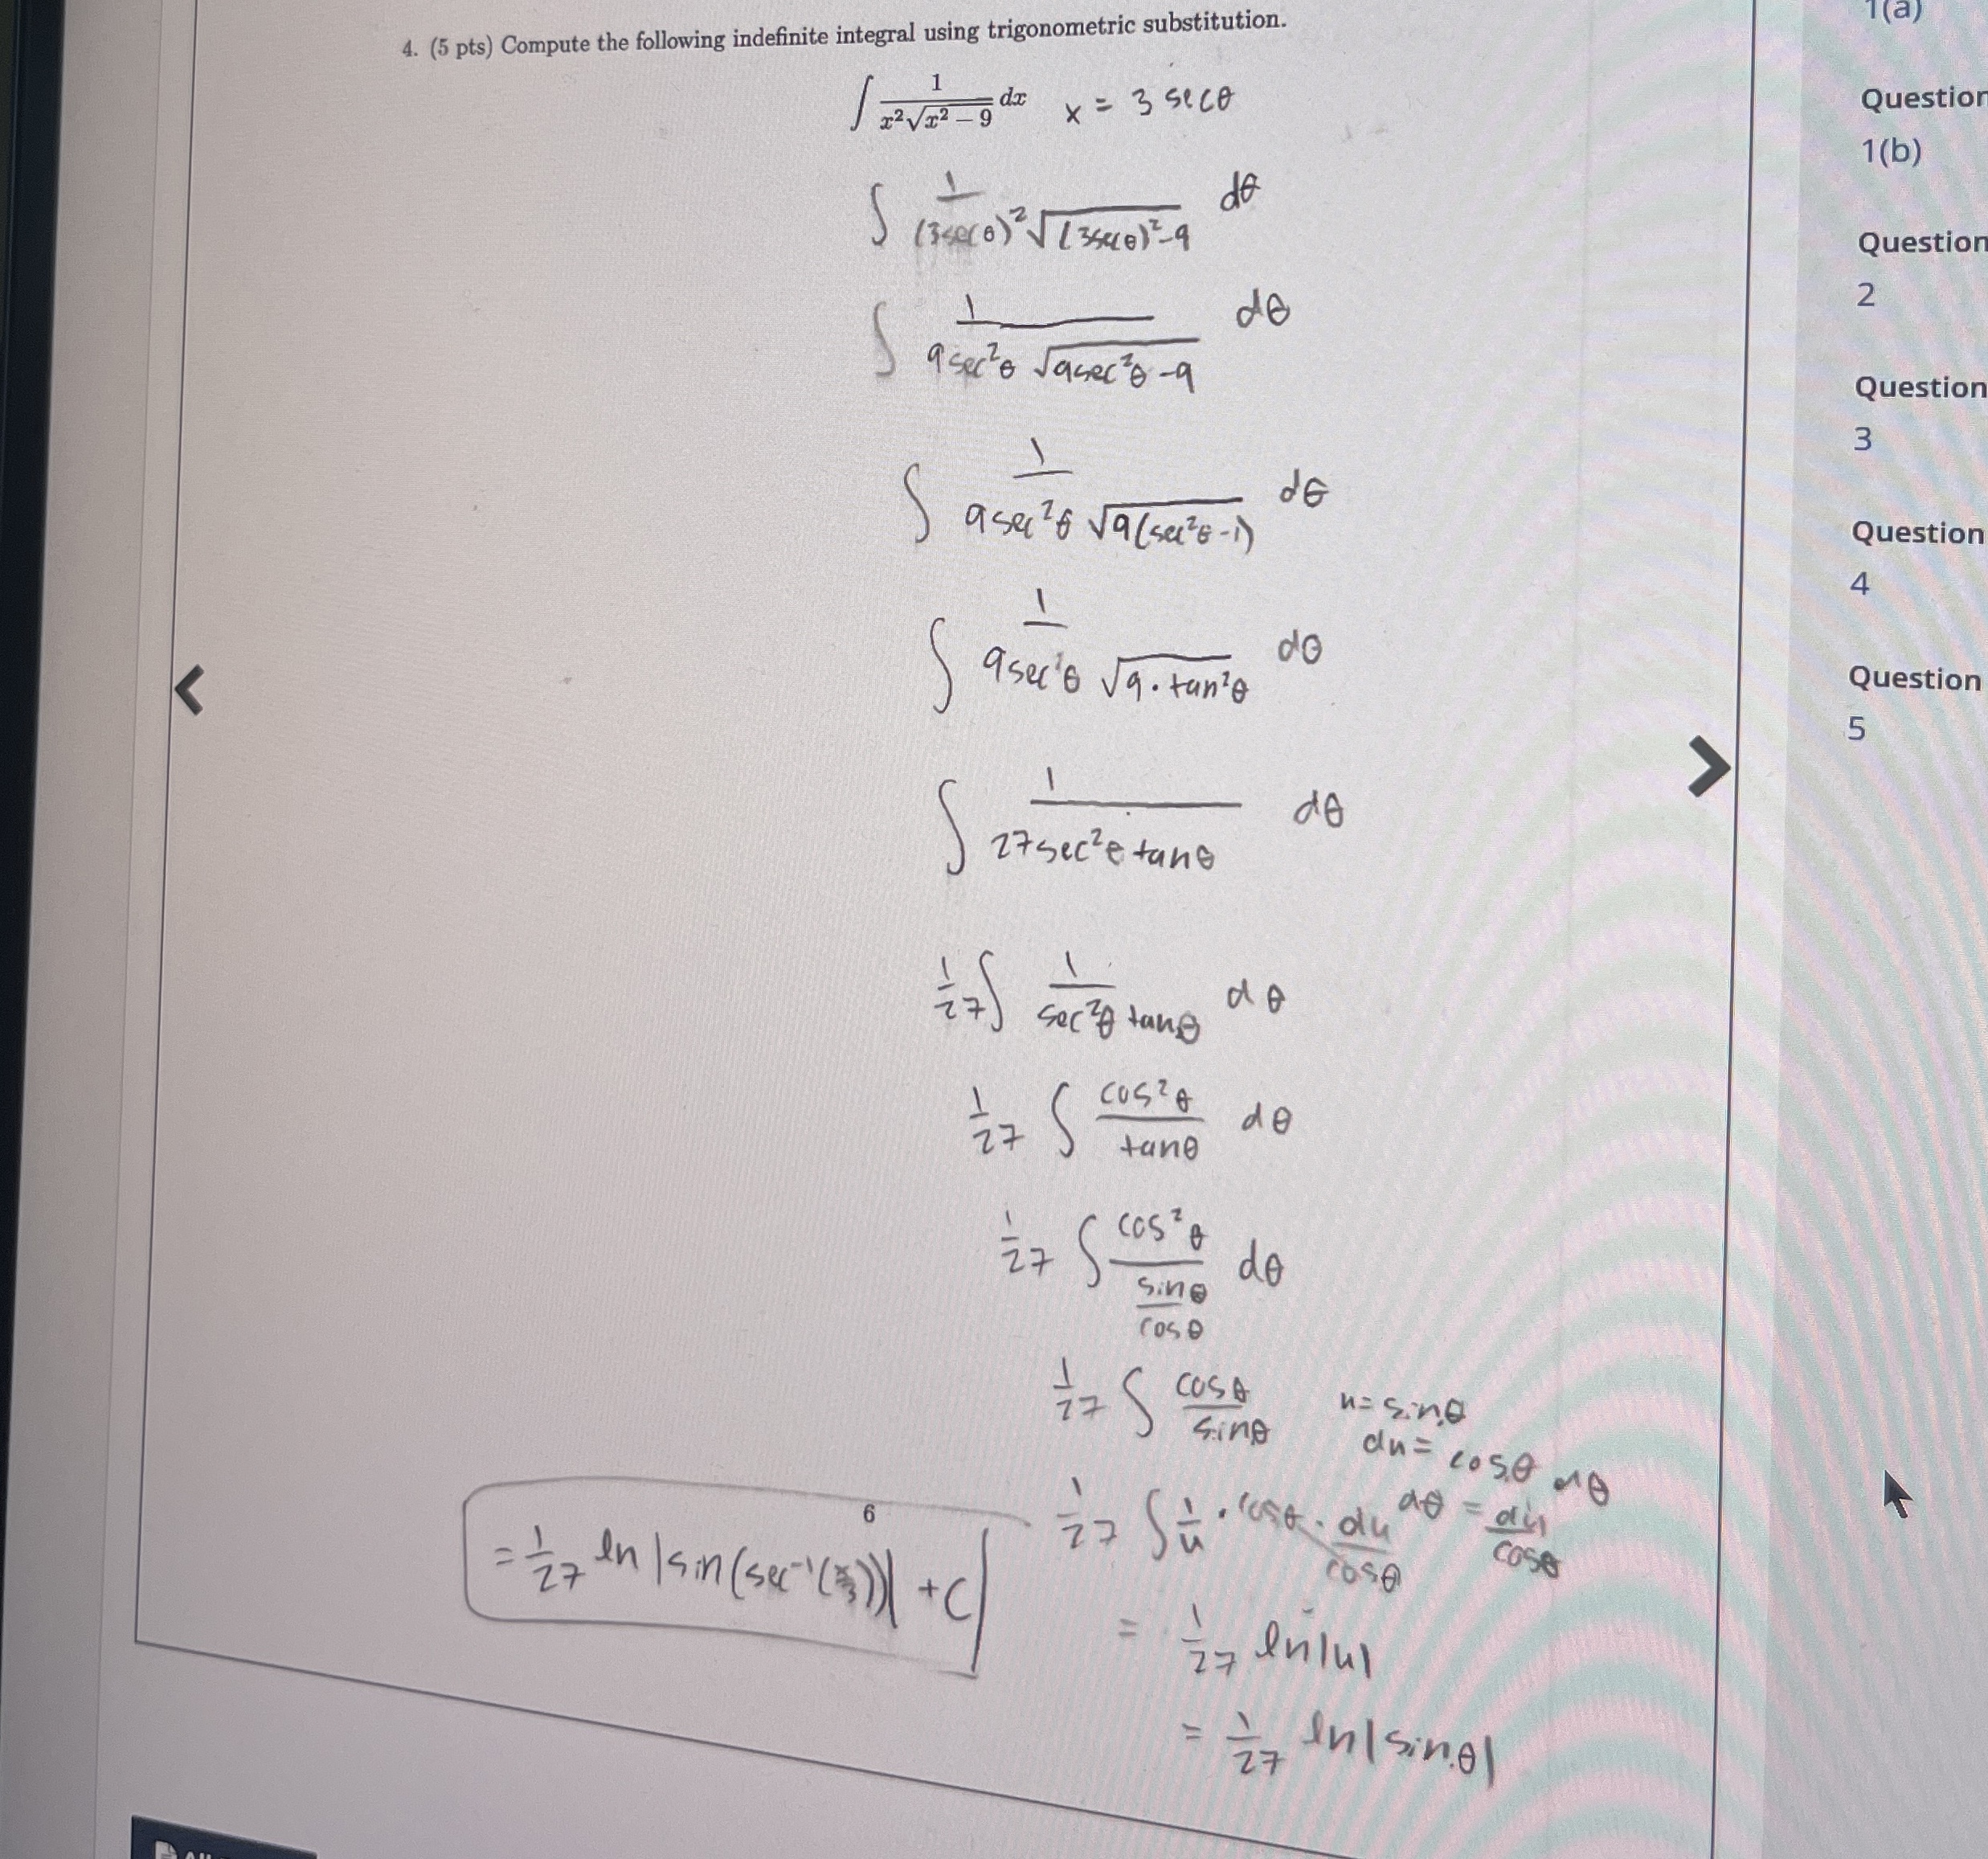 4. (5 pts) Compute the following indefinite integral using trigonometric substitution.
∫ 1/(x²√(x² − 9)) dx   x = 3 secθ
∫ 1/((3secθ)²√((3secθ)²−9)) dθ
∫ 1/(9sec²θ √(9sec²θ −9)) dθ
∫ 1/(9sec²θ √(9(sec²θ −1))) dθ
∫ 1/(9sec²θ √(9 · tan²θ)) dθ
∫ 1/(27sec²θ tanθ) dθ
1/27 ∫ 1/(sec²θ tanθ) dθ
1/27 ∫ cos²θ/tanθ dθ
1/27 ∫ cos²θ/(sinθ/cosθ) dθ
1/27 ∫ cosθ/sinθ   u = sinθ
du = cosθ dθ
1/27 ∫ 1/u · cosθ · du/cosθ   dθ = du/cosθ
= 1/27 ln|u|
= 1/27 ln|sinθ|
6
= 1/27 ln |sin(sec⁻¹(x/3))| + C
1(a)
Question
1(b)
Question
2
Question
3
Question
4
Question
5